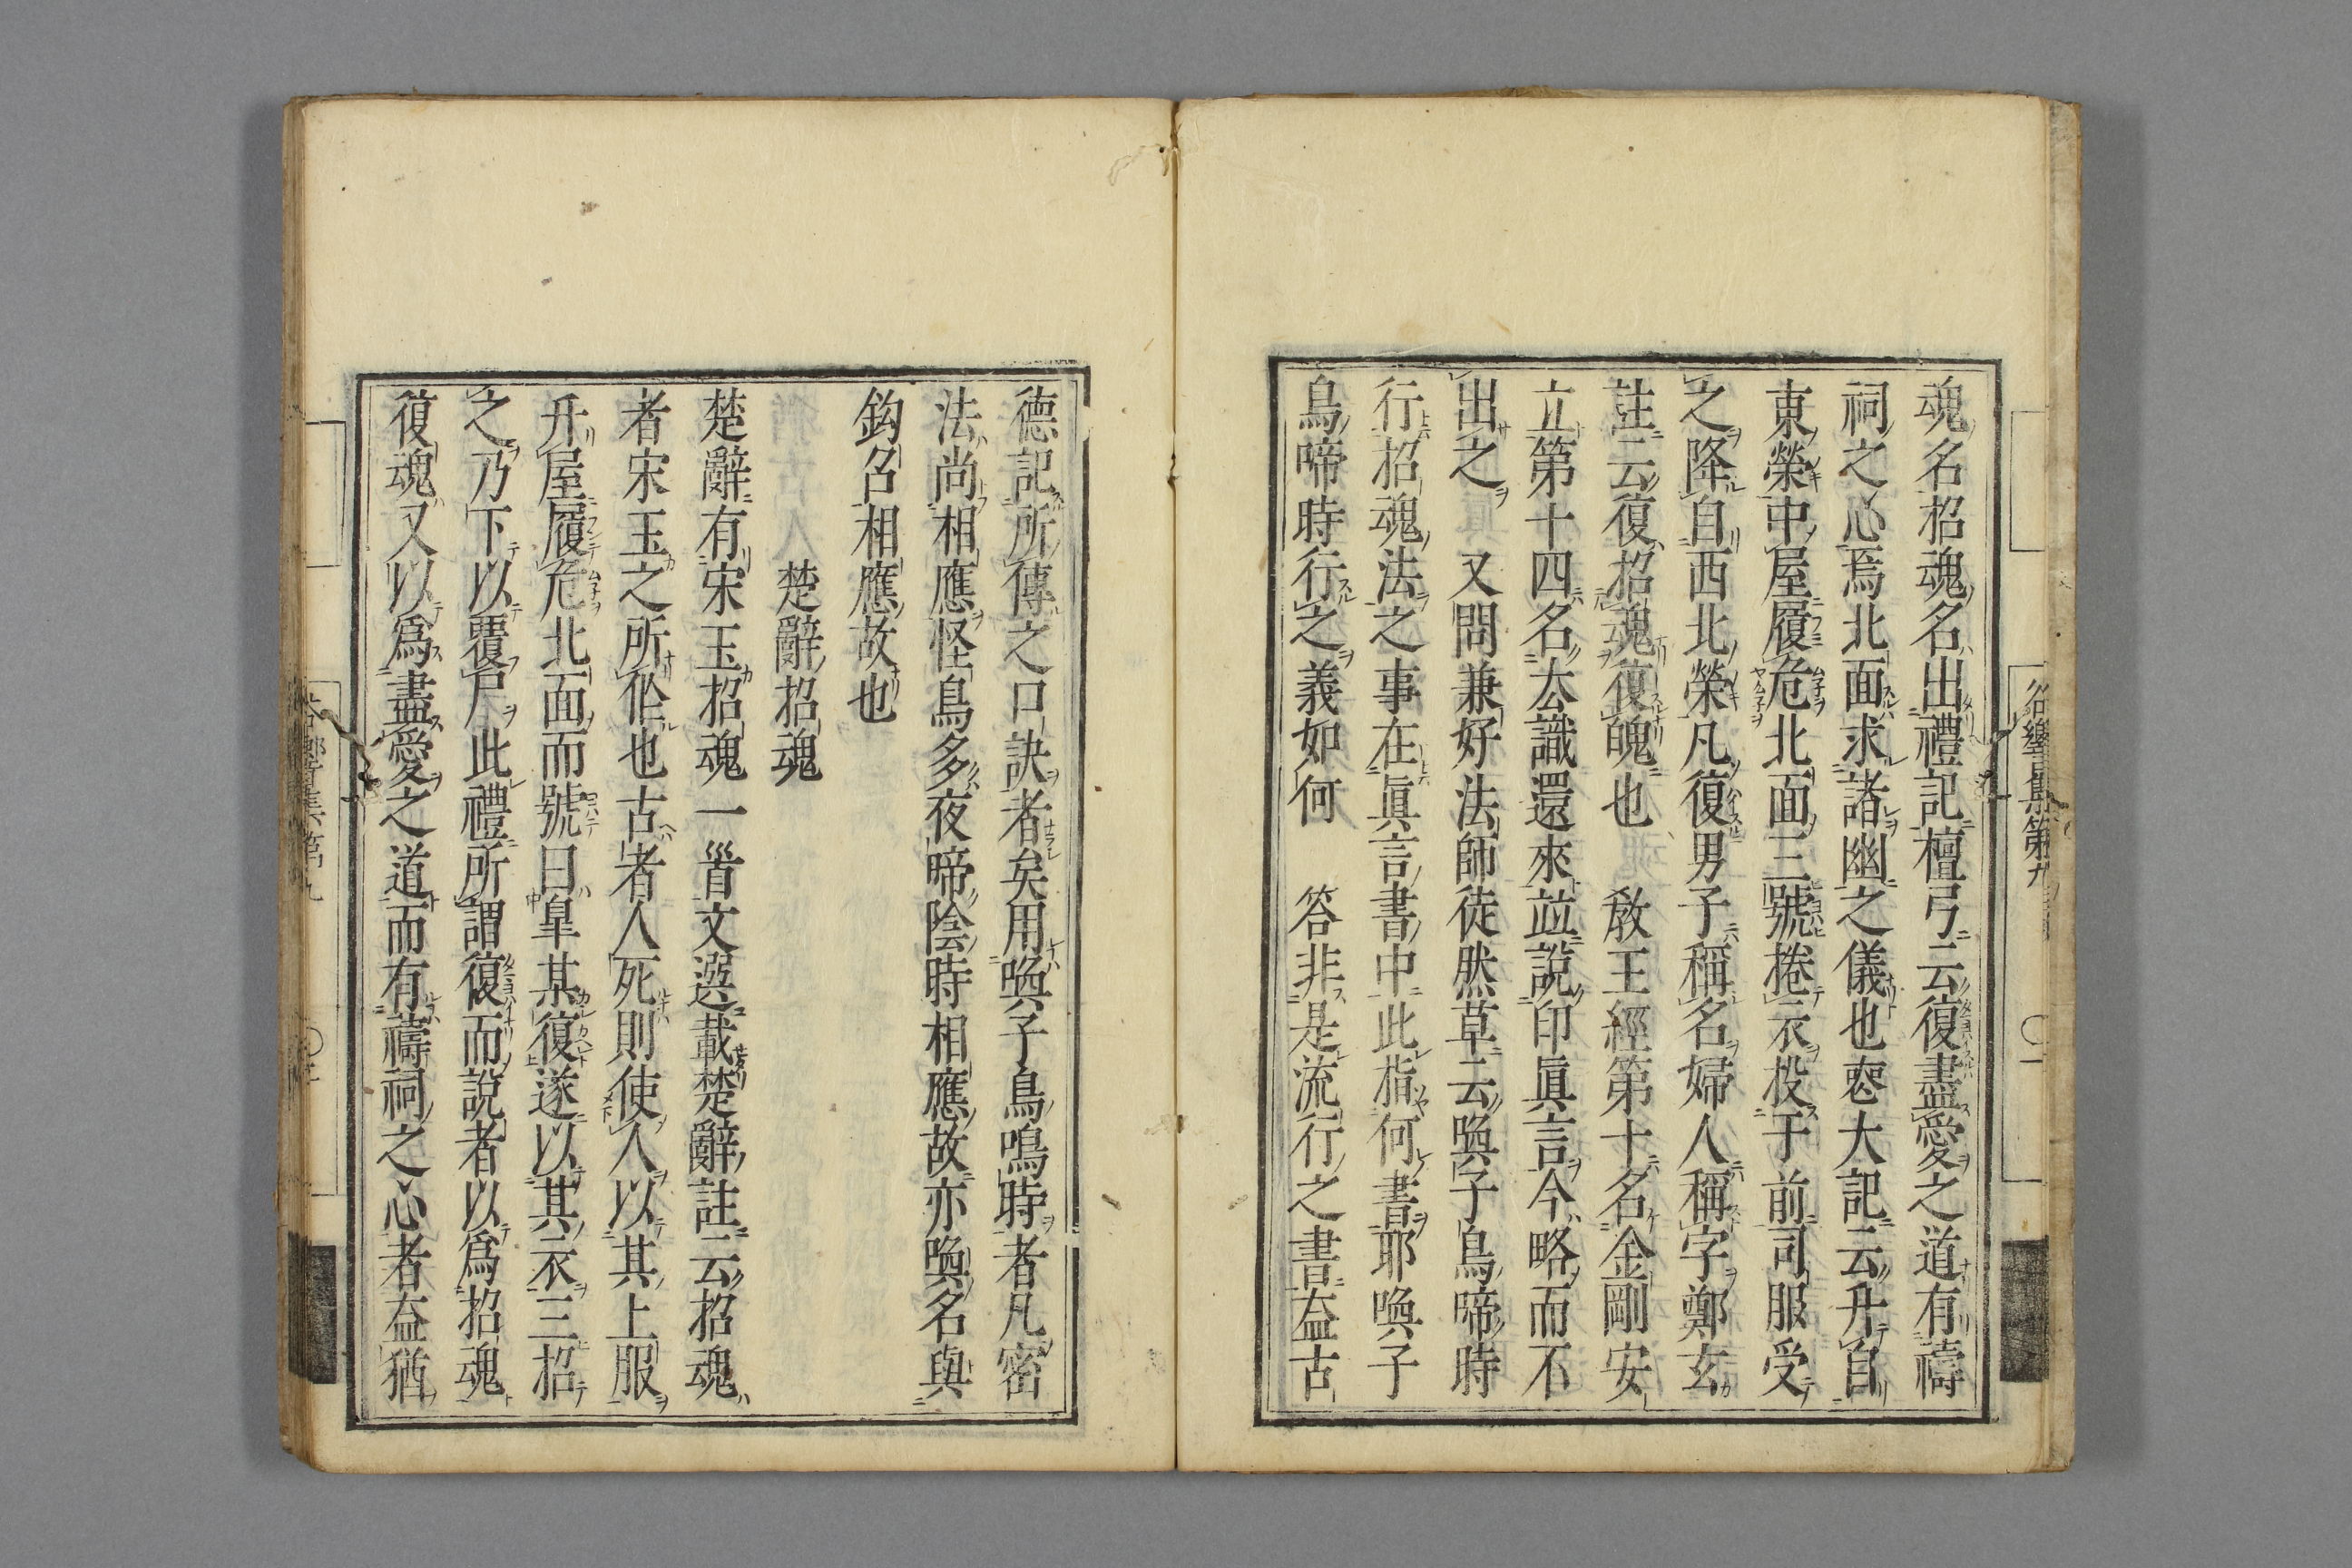 魂名招魂名出禮記檀弓云復盡愛之道有禱
祠之心焉北面求諸幽之儀也喪大記云升自
東榮中屋履危北面三號捲衣投于前司服受
之降自西北榮凡復男子稱名婦人稱字鄭玄
註云復招魂復魄也　敎王經第十名金剛安
立第十四名公識還來並說印眞言今略而不
出之　又問兼好法師徒然草云喚子鳥啼時
行招魂法之事在眞言書中此指何書耶喚子
鳥啼時行之義如何　答非是流行之書蓋古
德記所傳之口訣者矣用喚子鳥鳴時者凡密
法尚相應怪鳥多夜啼陰時相應故亦喚名與
鈎召相應故也
楚辭招魂
楚辭有宋玉招魂一首文選載楚辭註云招魂
者宋玉之所作也古者人死則使人以其上服
升屋履危北面而號曰皐某復遂以其衣三招
之乃下以覆尸此禮所謂復而說者以爲招魂
復魂又以爲盡愛之道而有禱祠之心者蓋猶
谷響集第九　〇一
谷響集第九